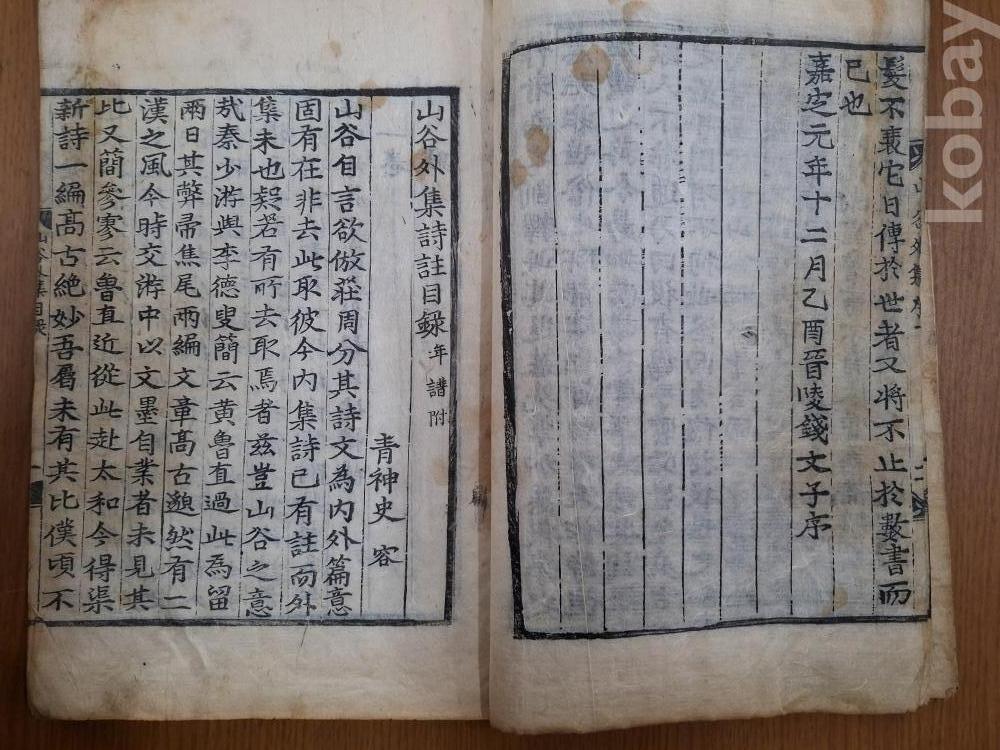 髮不衰它日傳於世者又將不止於數書而
已也
嘉定元年十二月乙酉晉陵錢文子序
山谷外集詩註目錄 年譜附
青神史 容
山谷自言欲倣莊周分其詩文為內外篇意
固有在非去此取彼今內集詩已有註而外
集未也疑若有所去取焉者玆豈山谷之意
哉秦少游與李德叟簡云黃魯直過此為留
兩日其弊帚焦尾兩編文章高古邈然有二
漢之風今時交游中以文墨自業者未見其
比又簡參寥云魯直近從此赴太和令得渠
新詩一編高古絕妙吾屬未有其比僕頃不
山谷外集目錄
kobay